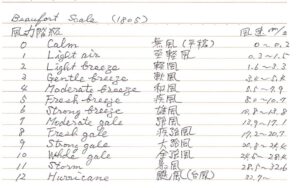 Beaufort Scale (1805)
風力階級 風速 m/s
0 Calm 無風(平穏) 0~0.2
1 Light air 至軽風 0.3~1.5
2 Light breeze 軽風 1.6~3.3
3 Gentle breeze 軟風 3.4~5.4
4 Moderate breeze 和風 5.5~7.9
5 Fresh breeze 疾風 8.0~10.7
6 Strong breeze 雄風 10.8~13.8
7 Moderate gale 強風 13.9~17.1
8 Fresh gale 疾強風 17.2~20.7
9 Strong gale 大強風 20.8~24.4
10 Whole gale 全強風 24.5~28.4
11 Storm 暴風 28.5~32.6
12 Hurricane 颶風(台風) 32.7~